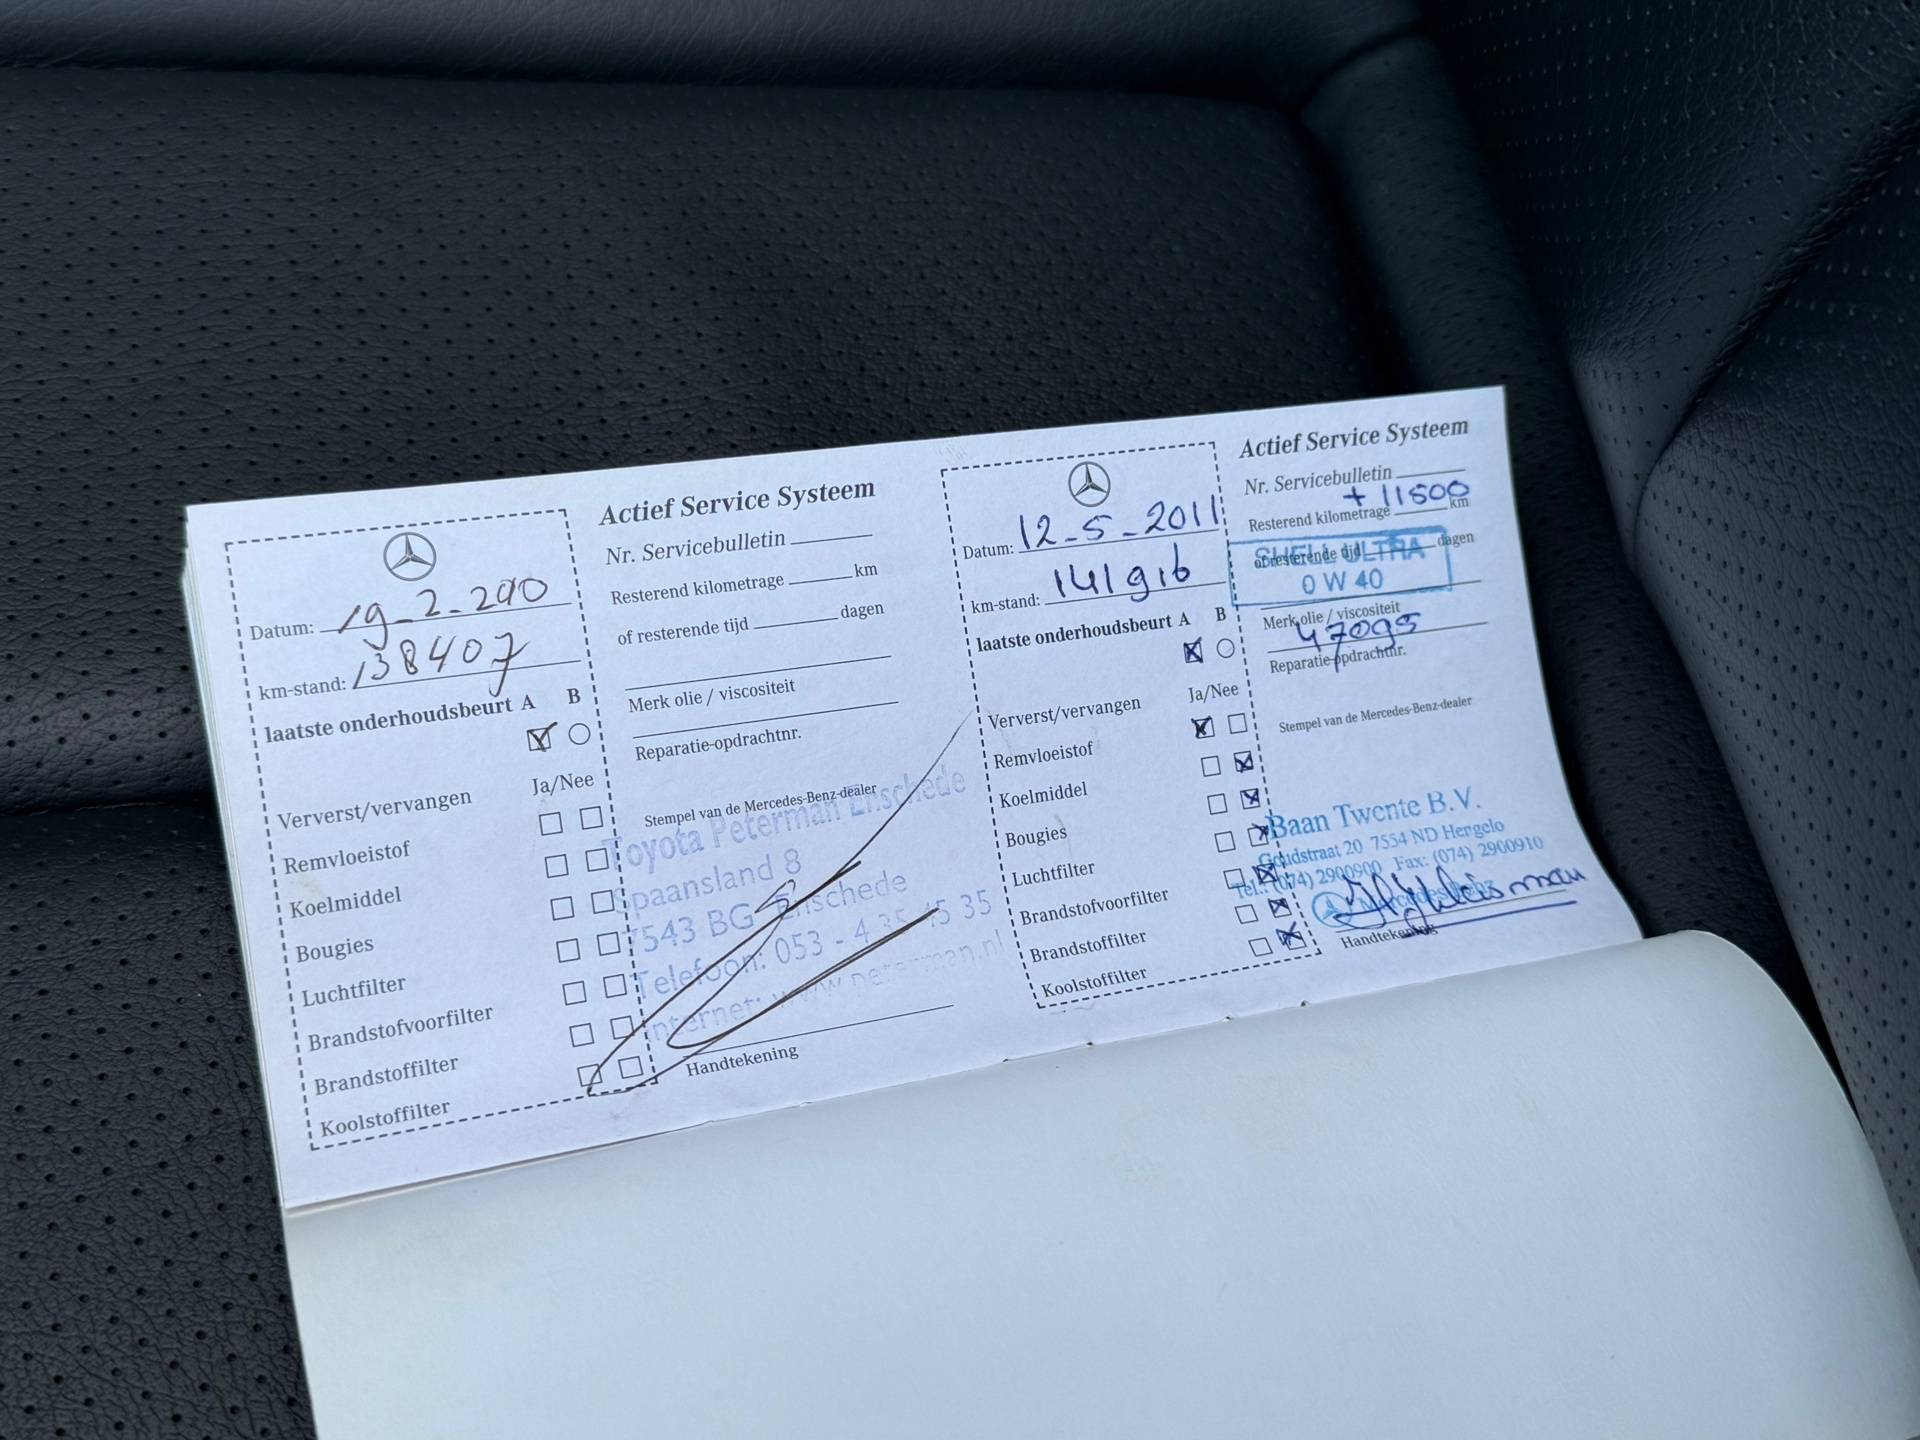 Actief Service Systeem
Datum: 19-2-2010
Nr. Servicebulletin
km-stand: 138407
Resterend kilometrage km
laatste onderhoudsbeurt A B
of resterende tijd dagen
Merk olie / viscositeit
Reparatie-opdrachtnr.
Ja/Nee
Ververst/vervangen
Remvloeistof
Koelmiddel
Bougies
Luchtfilter
Brandstofvoorfilter
Brandstoffilter
Koolstoffilter
Stempel van de Mercedes-Benz-dealer
Toyota Peterman Enschede
Spaansland 8
7543 BG Enschede
Telefoon: 053 - 4 35 45 35
Internet: www.peterman.nl
Handtekening
Actief Service Systeem
Datum: 12-5-2011
Nr. Servicebulletin
km-stand: 141916
+ 11500
Resterend kilometrage km
laatste onderhoudsbeurt A B
of resterende tijd dagen
SHELL ULTRA
0 W 40
Merk olie / viscositeit
47095
Reparatie-opdrachtnr.
Ja/Nee
Ververst/vervangen
Remvloeistof
Koelmiddel
Bougies
Luchtfilter
Brandstofvoorfilter
Brandstoffilter
Koolstoffilter
Stempel van de Mercedes-Benz-dealer
Baan Twente B.V.
Goudstraat 20 7554 ND Hengelo
Tel.: (074) 2900900 Fax: (074) 2900910
Mercedes-Benz
Handtekening